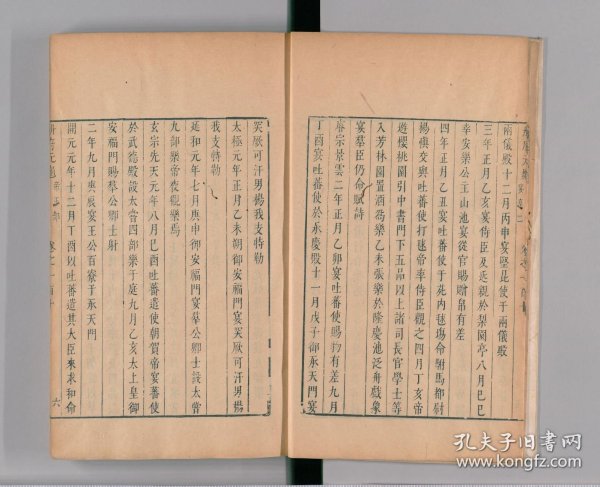 兩儀殿十二月丙申宴堅昆使于兩儀殿
三年正月乙亥宴侍臣及近親於梨園亭八月乙巳
幸安樂公主山池宴從官賜帛有差
四年正月乙丑宴吐蕃使于苑內毬塲命駙馬都尉
楊愼交與吐蕃使打毬帝率侍臣觀之四月丁亥帝
遊櫻桃園引中書門下五品以上諸司長官學士等
入芳林園置酒爲樂乙未張樂於隆慶池泛舟戲象
宴羣臣仍命賦詩
睿宗景雲二年正月乙卯宴吐蕃使賜物有差九月
丁酉宴吐蕃使於承慶殿十一月戊子御承天門宴
突厥可汗男揚我支特勒
太極元年正月乙未朔御安福門宴突厥可汗男揚
我支特勒
延和元年七月庚申御安福門宴羣公卿士設太嘗
九部樂帝夜觀樂焉
玄宗先天元年八月己酉吐蕃遣使朝賀帝宴蕃使
於武德殿設太嘗四部樂于庭九月乙亥太上皇御
安福門賜羣公卿士射
二年九月庚辰宴王公百寮于承天門
開元元年十二月丁酉以吐蕃遣其大臣來求和命
六
孔夫子旧书网
www.kongfz.com